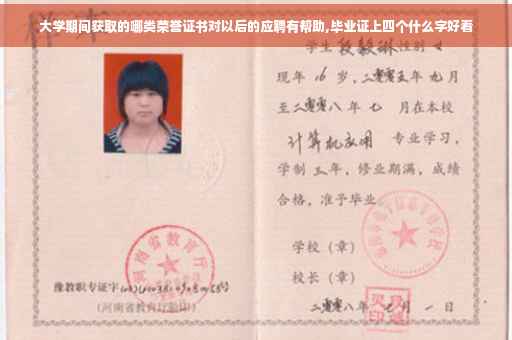 大学期间获取的哪类荣誉证书对以后的应聘有帮助,毕业证上四个什么字好看
学生 段毅琳 性别 女
现年 16 岁，二零零五年 九月
至二零零八年 七 月在本校
计算机应用 专业学习，
学制 三 年，修业期满，成绩
合格，准予毕业
学校（章）
校长（章）
二零零八年 七 月 一 日
河南省教育厅
豫教职专证字
（河南省教育厅验印）